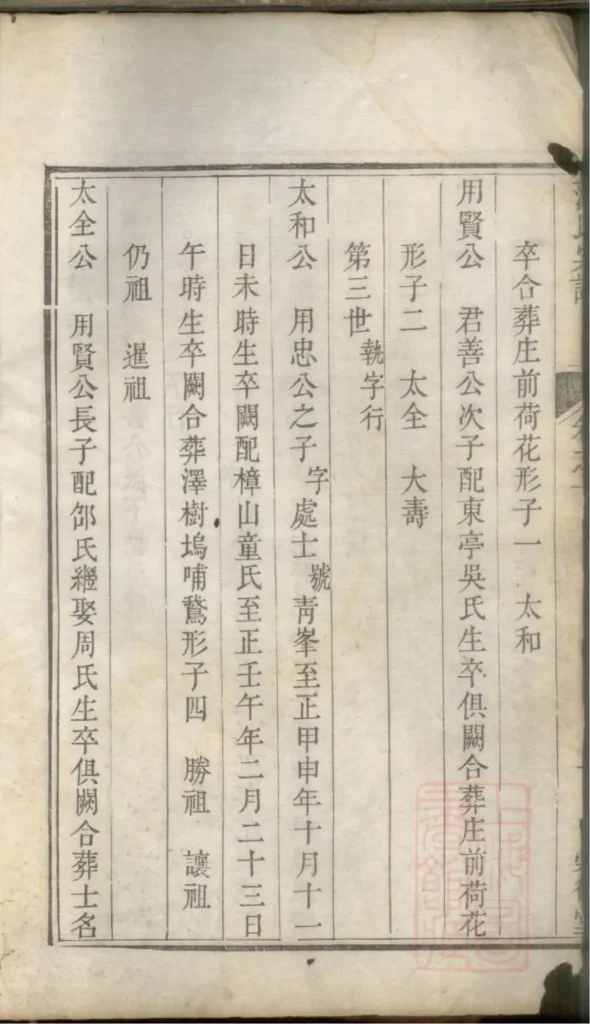 卒合葬庄前荷花形子一　太和
用賢公　君善公次子配東亭吳氏生卒俱闕合葬庄前荷花
形子二　太全　大壽
第三世執字行
太和公　用忠公之子字處士號青峯至正甲申年十月十一
日未時生卒闕配樟山童氏至正壬午年二月二十三日
午時生卒闕合葬澤樹塢哺鷄形子四　勝祖　讓祖
仍祖　暹祖
太全公　用賢公長子配邹氏繼娶周氏生卒俱闕合葬士名